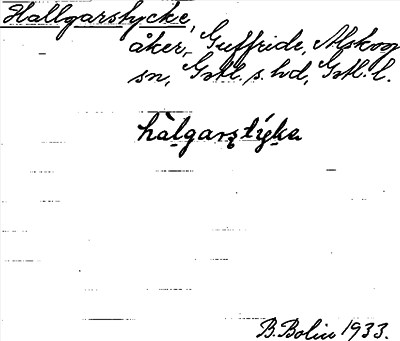 Hallgarstycke,
åker, Guffride, Alskog
sn, Gotl. s. hd, Gotl. l.
hàlgarstýka
B. Bolin 1933.